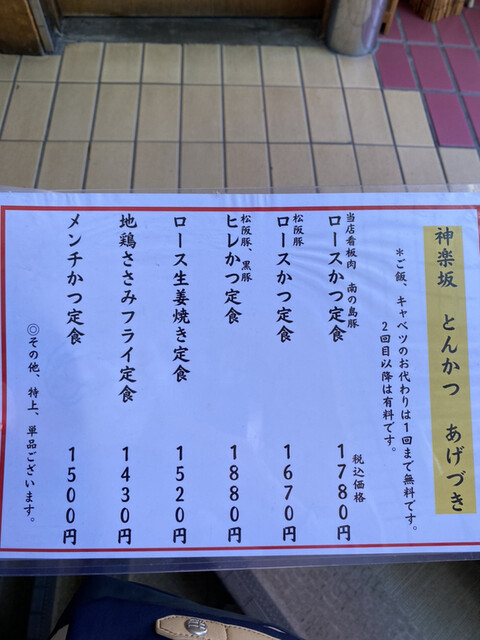 神楽坂 とんかつ あげづき
*ご飯、キャベツのお代わりは1回まで無料です。
2回目以降は有料です。
税込価格
当店看板肉 南の島豚
ロースかつ定食 1780円
松阪豚
ロースかつ定食 1670円
松阪豚、黒豚
ヒレかつ定食 1880円
ロース生姜焼き定食 1520円
地鶏ささみフライ定食 1430円
メンチかつ定食 1500円
◎その他、特上、単品ございます。